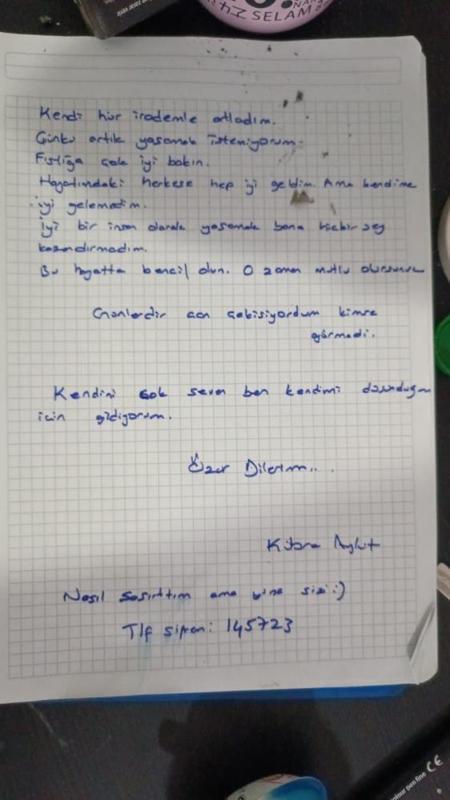 SELAM
Kendi hür irademle atladım.
Çünkü artık yaşamak istemiyorum.
Fıstığa çok iyi bakın.
Hayatımdaki herkese hep iyi geldim. Ama kendime
iyi gelemedim.
İyi bir insan olarak yaşamak bana hiçbir şey
kazandırmadım.
Bu hayatta bencil olun. O zaman mutlu olursunuz
acı çekişiyordum kimse
görmedi.
Kendini çok seven ben kendimi
için gidiyorum.
Özür Dilerim...
Kübra Aykut
Nasıl şaşırttım ama yine sizi:)
Tlf şifrem: 145723
CE